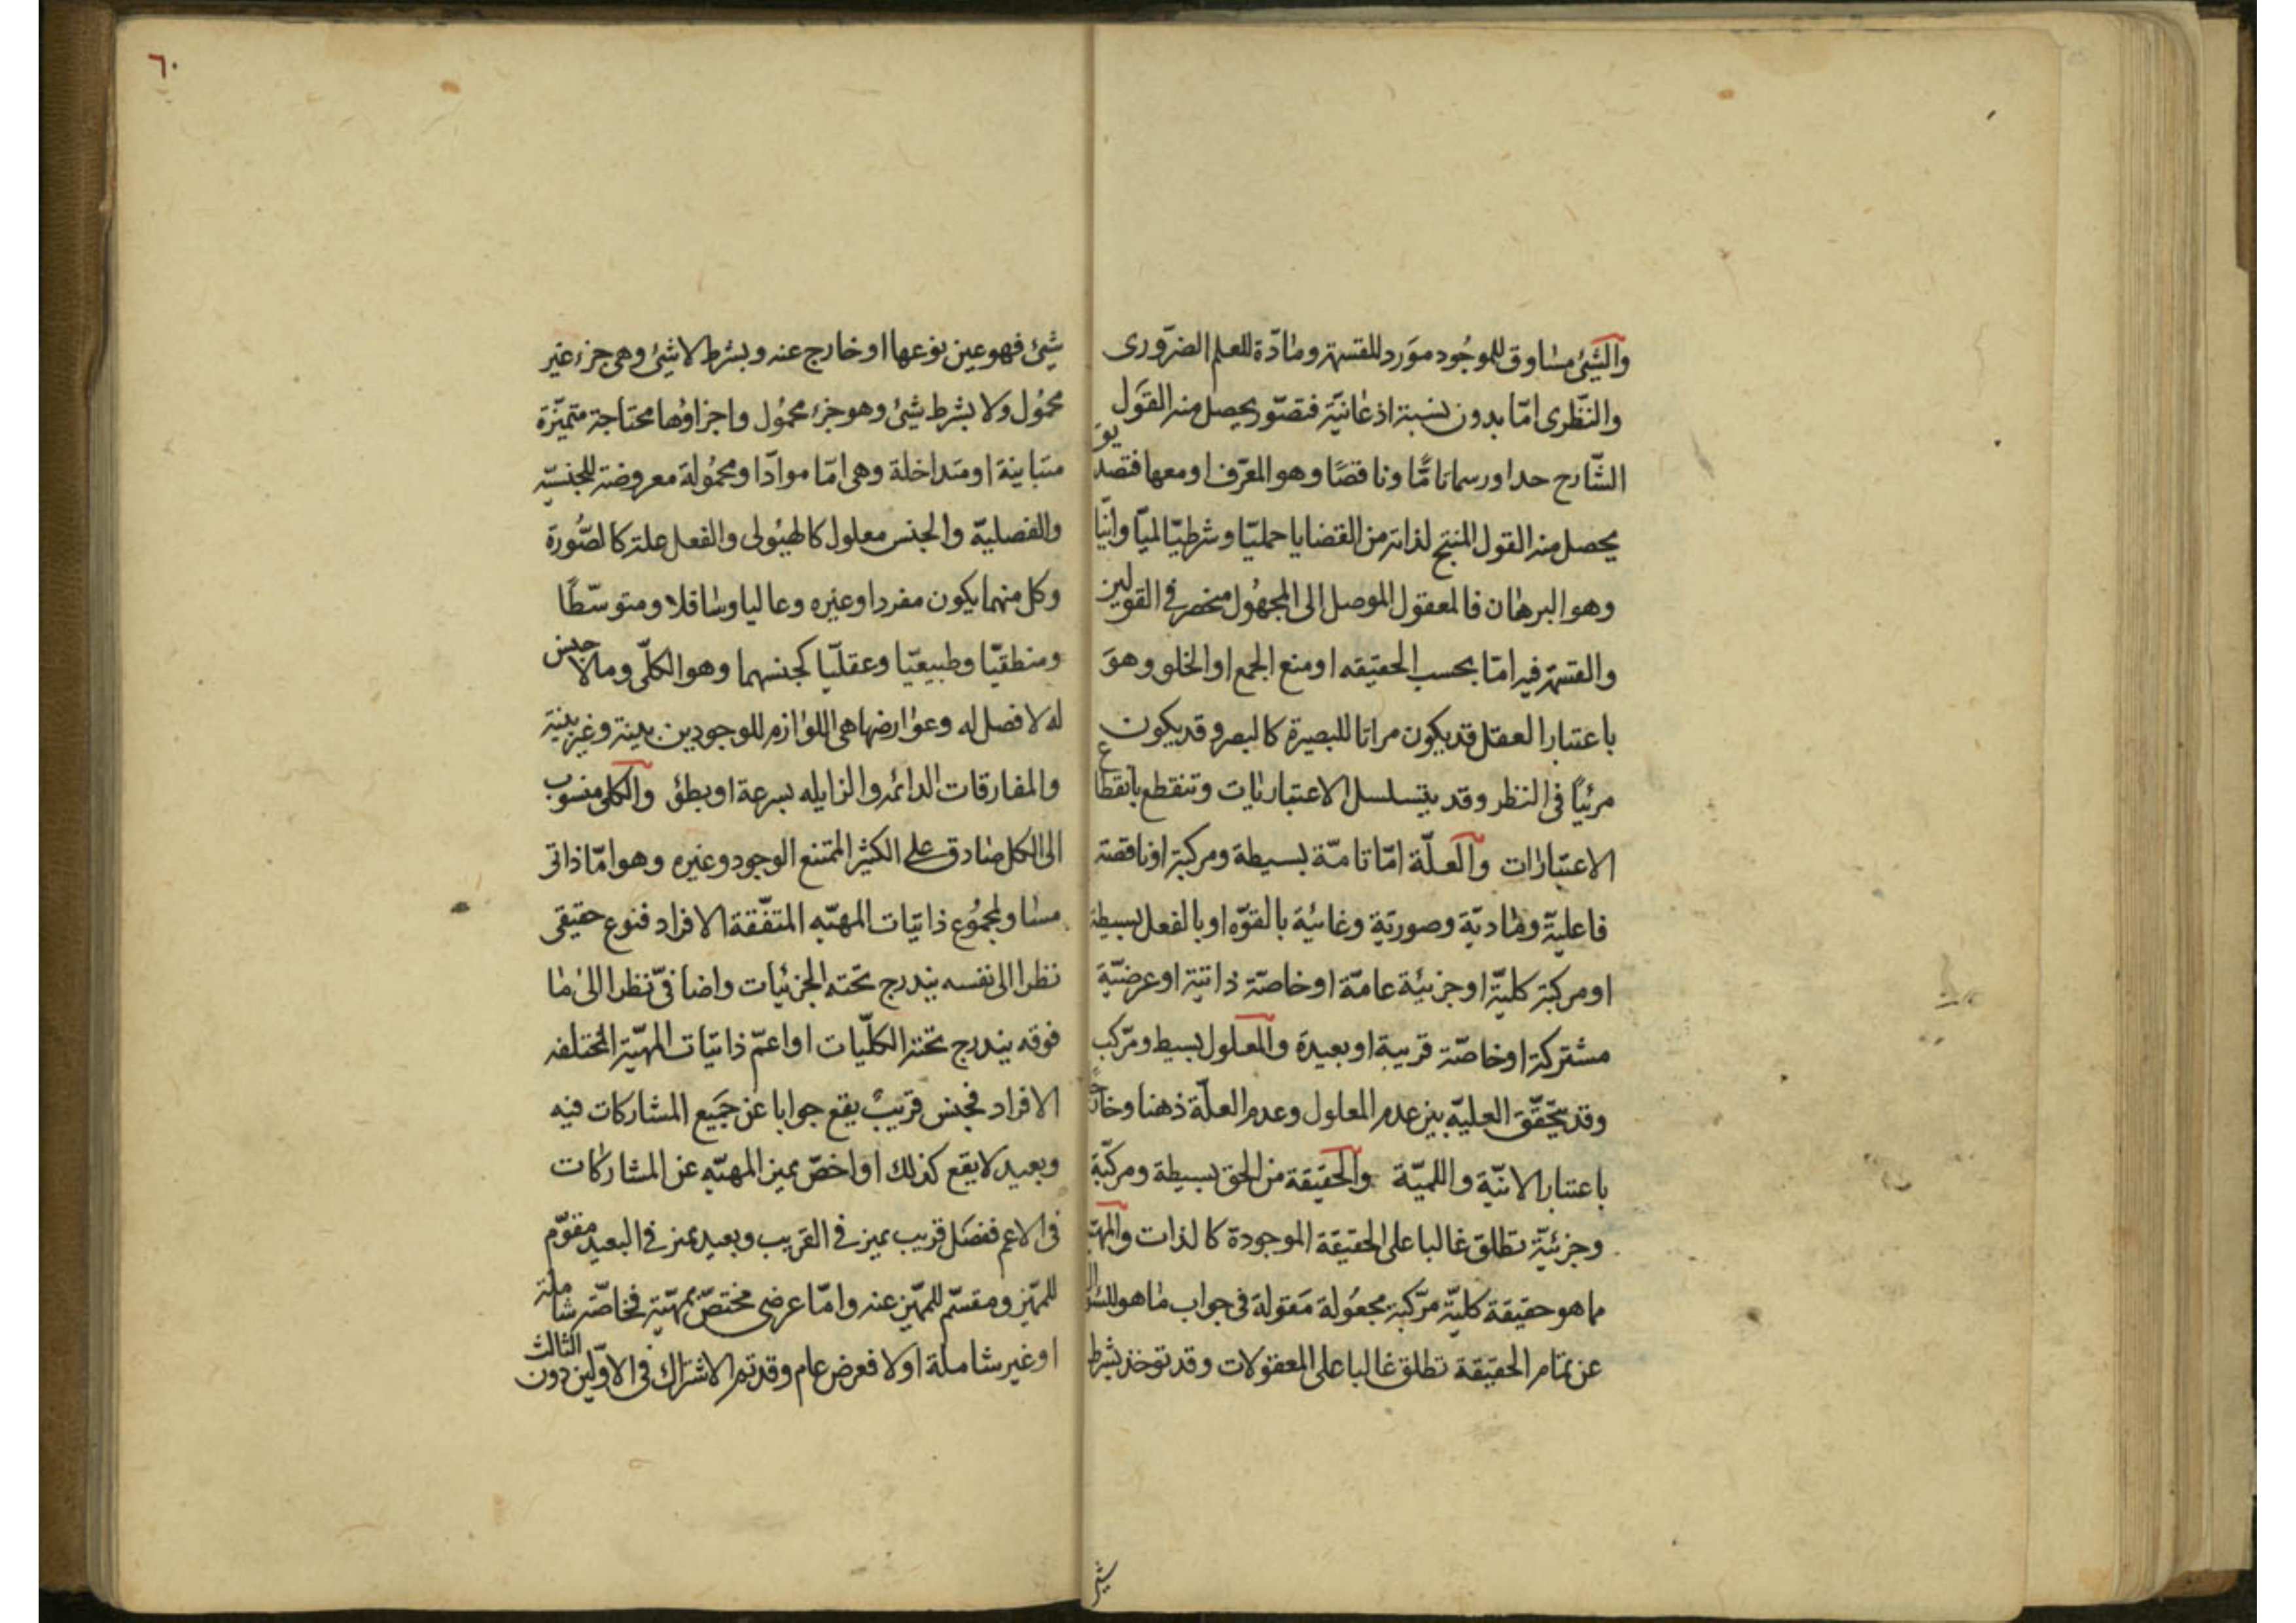 والشئ مساوق للموجود مورد للقسمة ومادّة للعلم الضّرورى
والنّظرى امّا بدون نسبة اذعانيّة فتصوّر يحصل منه القول
الشّارح حدا ورسما تامّا وناقصًا وهو المعرّف او معها فتصديق
يحصل منه القول المنتج لذاته من القضايا حمليّا وشرطيّا لميّا وانّيا
وهو البرهان فالمعقول الموصل الى المجهول منحصر فى القولين
والقسمة فيه امّا بحسب الحقيقه او منع الجمع او الخلو وهو
باعتبار العقل قد يكون مراتا للبصيرة كالبصر وقد يكون
مرئيّا فى النظر وقد يتسلسل الاعتباريات وتنقطع بانقطاع
الاعتبارات والعلّة امّا تامّة بسيطة ومركبة او ناقصة
فاعليّة ومادّية وصوريّة وغائيّة بالقوّه او بالفعل بسيطة
او مركبة كليّة او جزئيّة عامّة او خاصّة ذاتيّة او عرضيّة
مشتركة او خاصّة قريبة او بعيدة والمعلول بسيط ومركّب
وقد يتحقّق العليّه بين عدم المعلول وعدم العلّة ذهنا وخارجًا
باعتبار الانّيّة واللميّة والحقيقة من الحق بسيطة ومركّبة
وجزئيّة تطلق غالبا على الحقيقة الموجودة كالذات والمهيّة
ما هو حقيقة كليّة مركّبة مجعولة مقولة فى جواب ما هو للسؤال
عن تمام الحقيقة تطلق غالبا على المعقولات وقد توخذ بشرط
شئ
٦٠
شئ فهو عين نوعها او خارج عنه وبشرط لا شئ وهى جزء غير
محمول ولا بشرط شئ وهو جزء محمول واجزاؤها محتاجة متميّزة
متباينة او متداخلة وهى امّا موادّا ومحمولة معروضة للجنسيّه
والفصليّة والجنس معلول كالهيولى والفعل علة كالصّورة
وكل منهما يكون مفردا وغيره وعاليا وسافلا ومتوسّطًا
ومنطقيّا وطبيعيّا وعقليّا كجنسهما وهو الكلّى وما لا جنس
له لا فصل له وعوارضها هى اللوازم للوجودين بينة وغير بينة
والمفارقات الدائمه والزايله بسرعة او بطئ والكلى منسوب
الى الكل صادق على الكثير الممتنع الوجود وغيره وهو امّا ذاتى
مساو لمجموع ذاتيات المهيّه المتفّقة الافراد فنوع حقيقى
نظرا الى نفسه يندرج تحته الجزئيات واضافىّ نظرا الى ما
فوقه يندرج تحته الكلّيات او اعمّ ذاتيات المهيّة المختلفه
الافراد فجنس قريب يقع جوابا عن جميع المشاركات فيه
وبعيد لا يقع كذلك او اخصّ يميز المهيّه عن المشاركات
فى الاعم ففصل قريب يميز فى القريب وبعيد يميز فى البعيد مقوّم
للمميّز ومقسّم للمميّز عنه وامّا عرضى مختصّ بمهيّة فخاصّة شاملة
او غير شاملة او لا فعرض عام وقد تم الاشراك فى الاوّلين دون الثالث